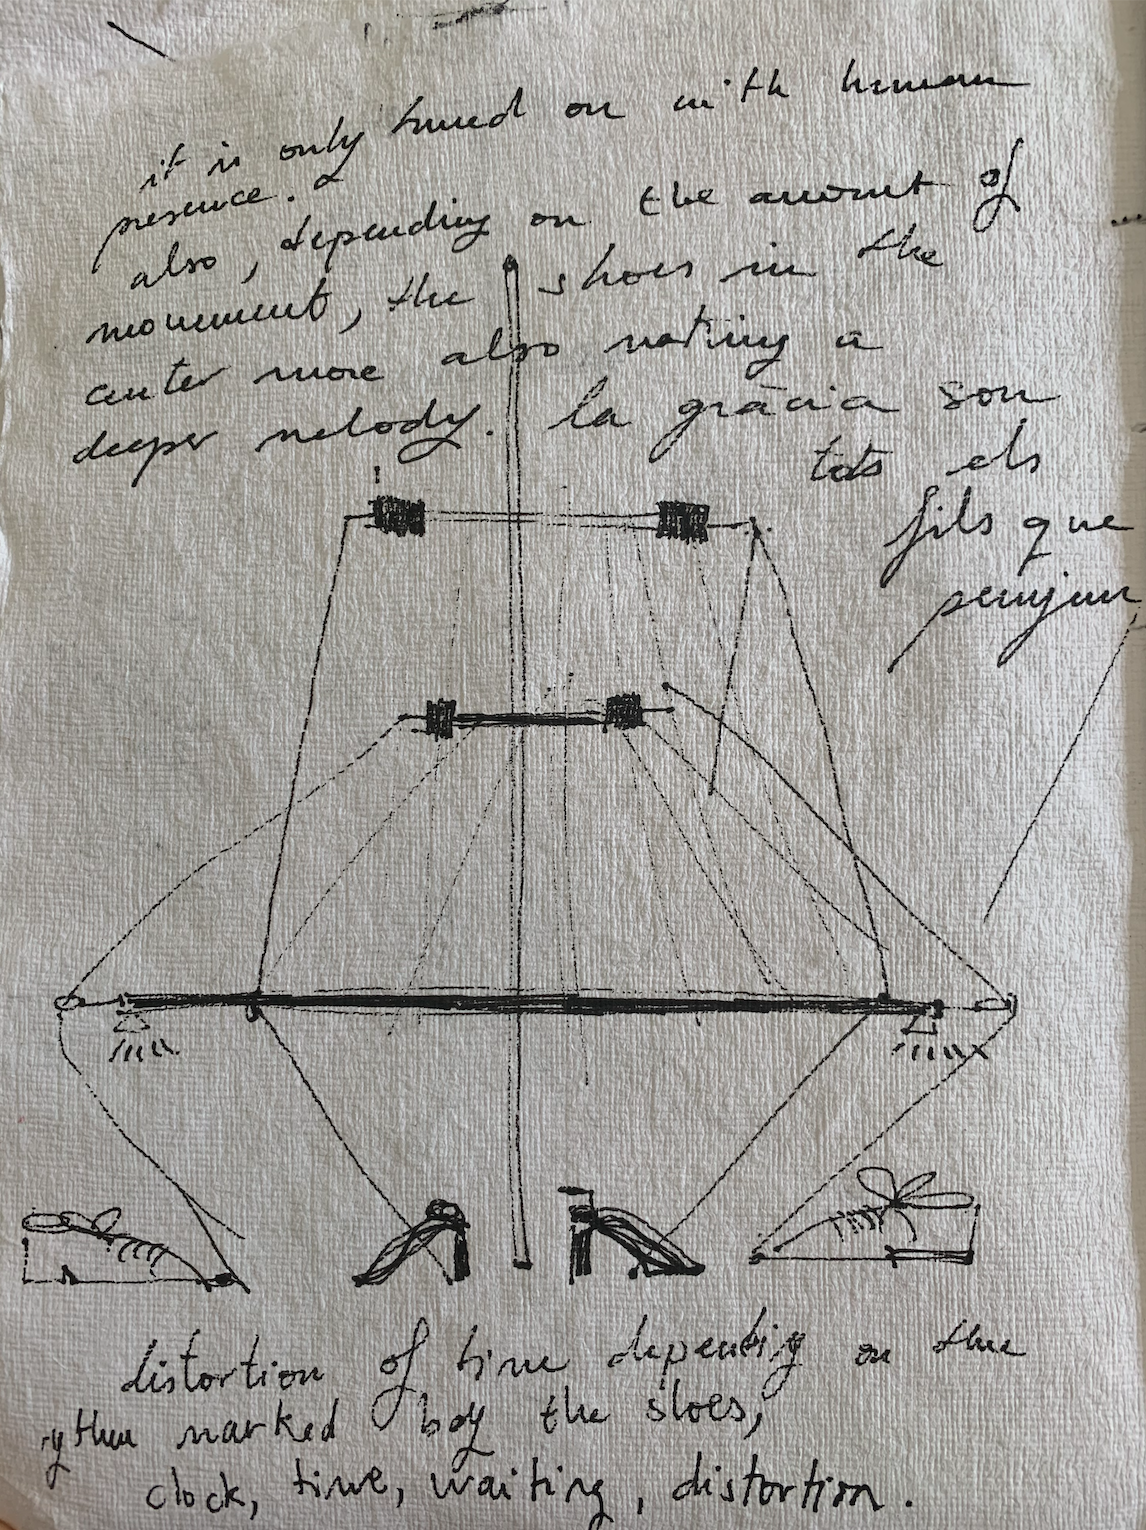 it is only tuned on with human
presence.
also, depending on the amount of
movement, the shoes in the
center more also making a
deeper melody. la gràcia son
tots els
fils que
penjan
distortion of time depending on the
rythm marked boy the shoes,
clock, time, waiting, distortion.